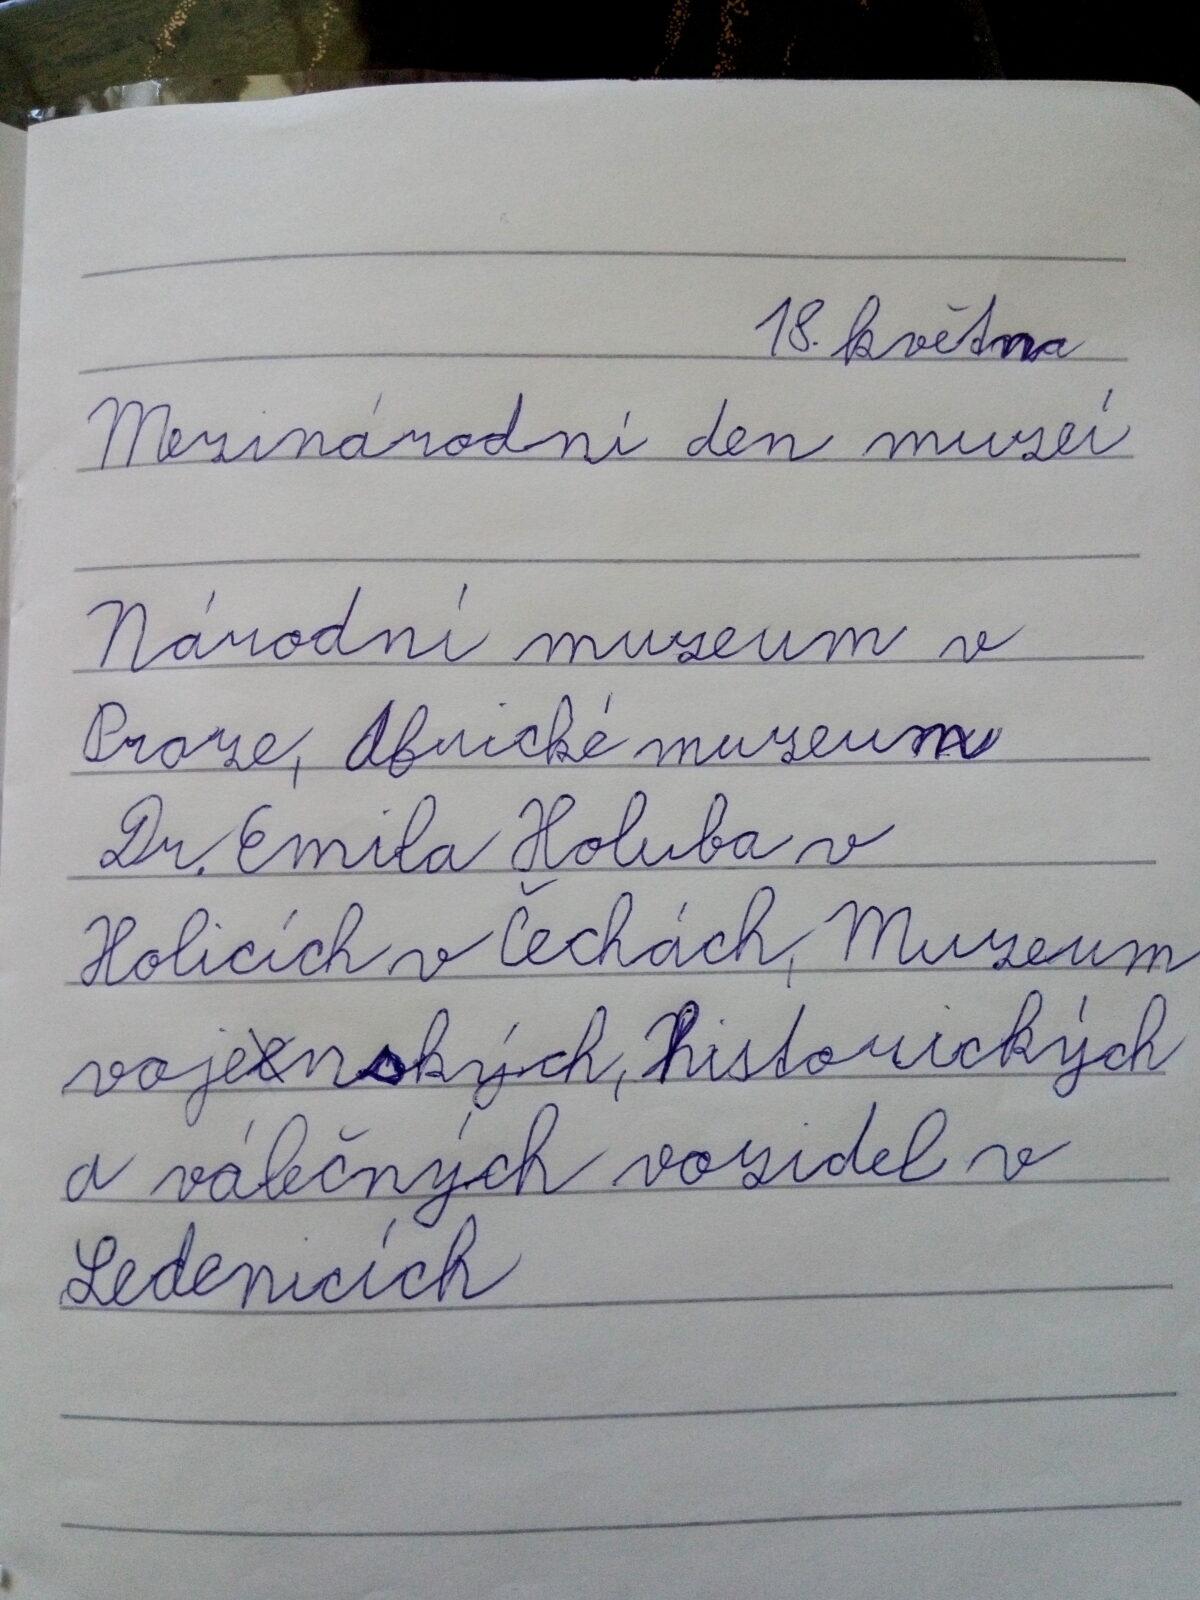 18. května
Mezinárodní den muzeí
Národní muzeum v
Praze, Africké muzeum
Dr. Emila Holuba v
Holicích v Čechách, Muzeum
vojenských, historických
a válečných vozidel v
Ledenicích